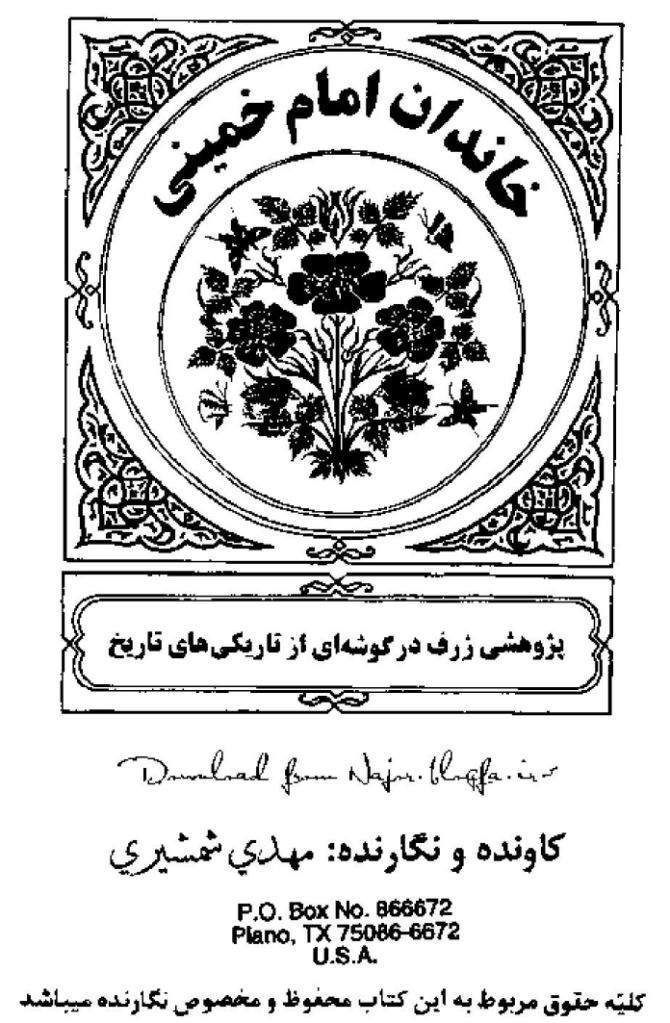 خاندان امام خمینی
پژوهشی ژرف در گوشه‌ای از تاریکی‌های تاریخ
Download from
کاونده و نگارنده: مهدي شمشيري
P.O. Box No. 866672
Plano, TX 75086-6672
U.S.A.
کلیّه حقوق مربوط به این کتاب محفوظ و مخصوص نگارنده میباشد